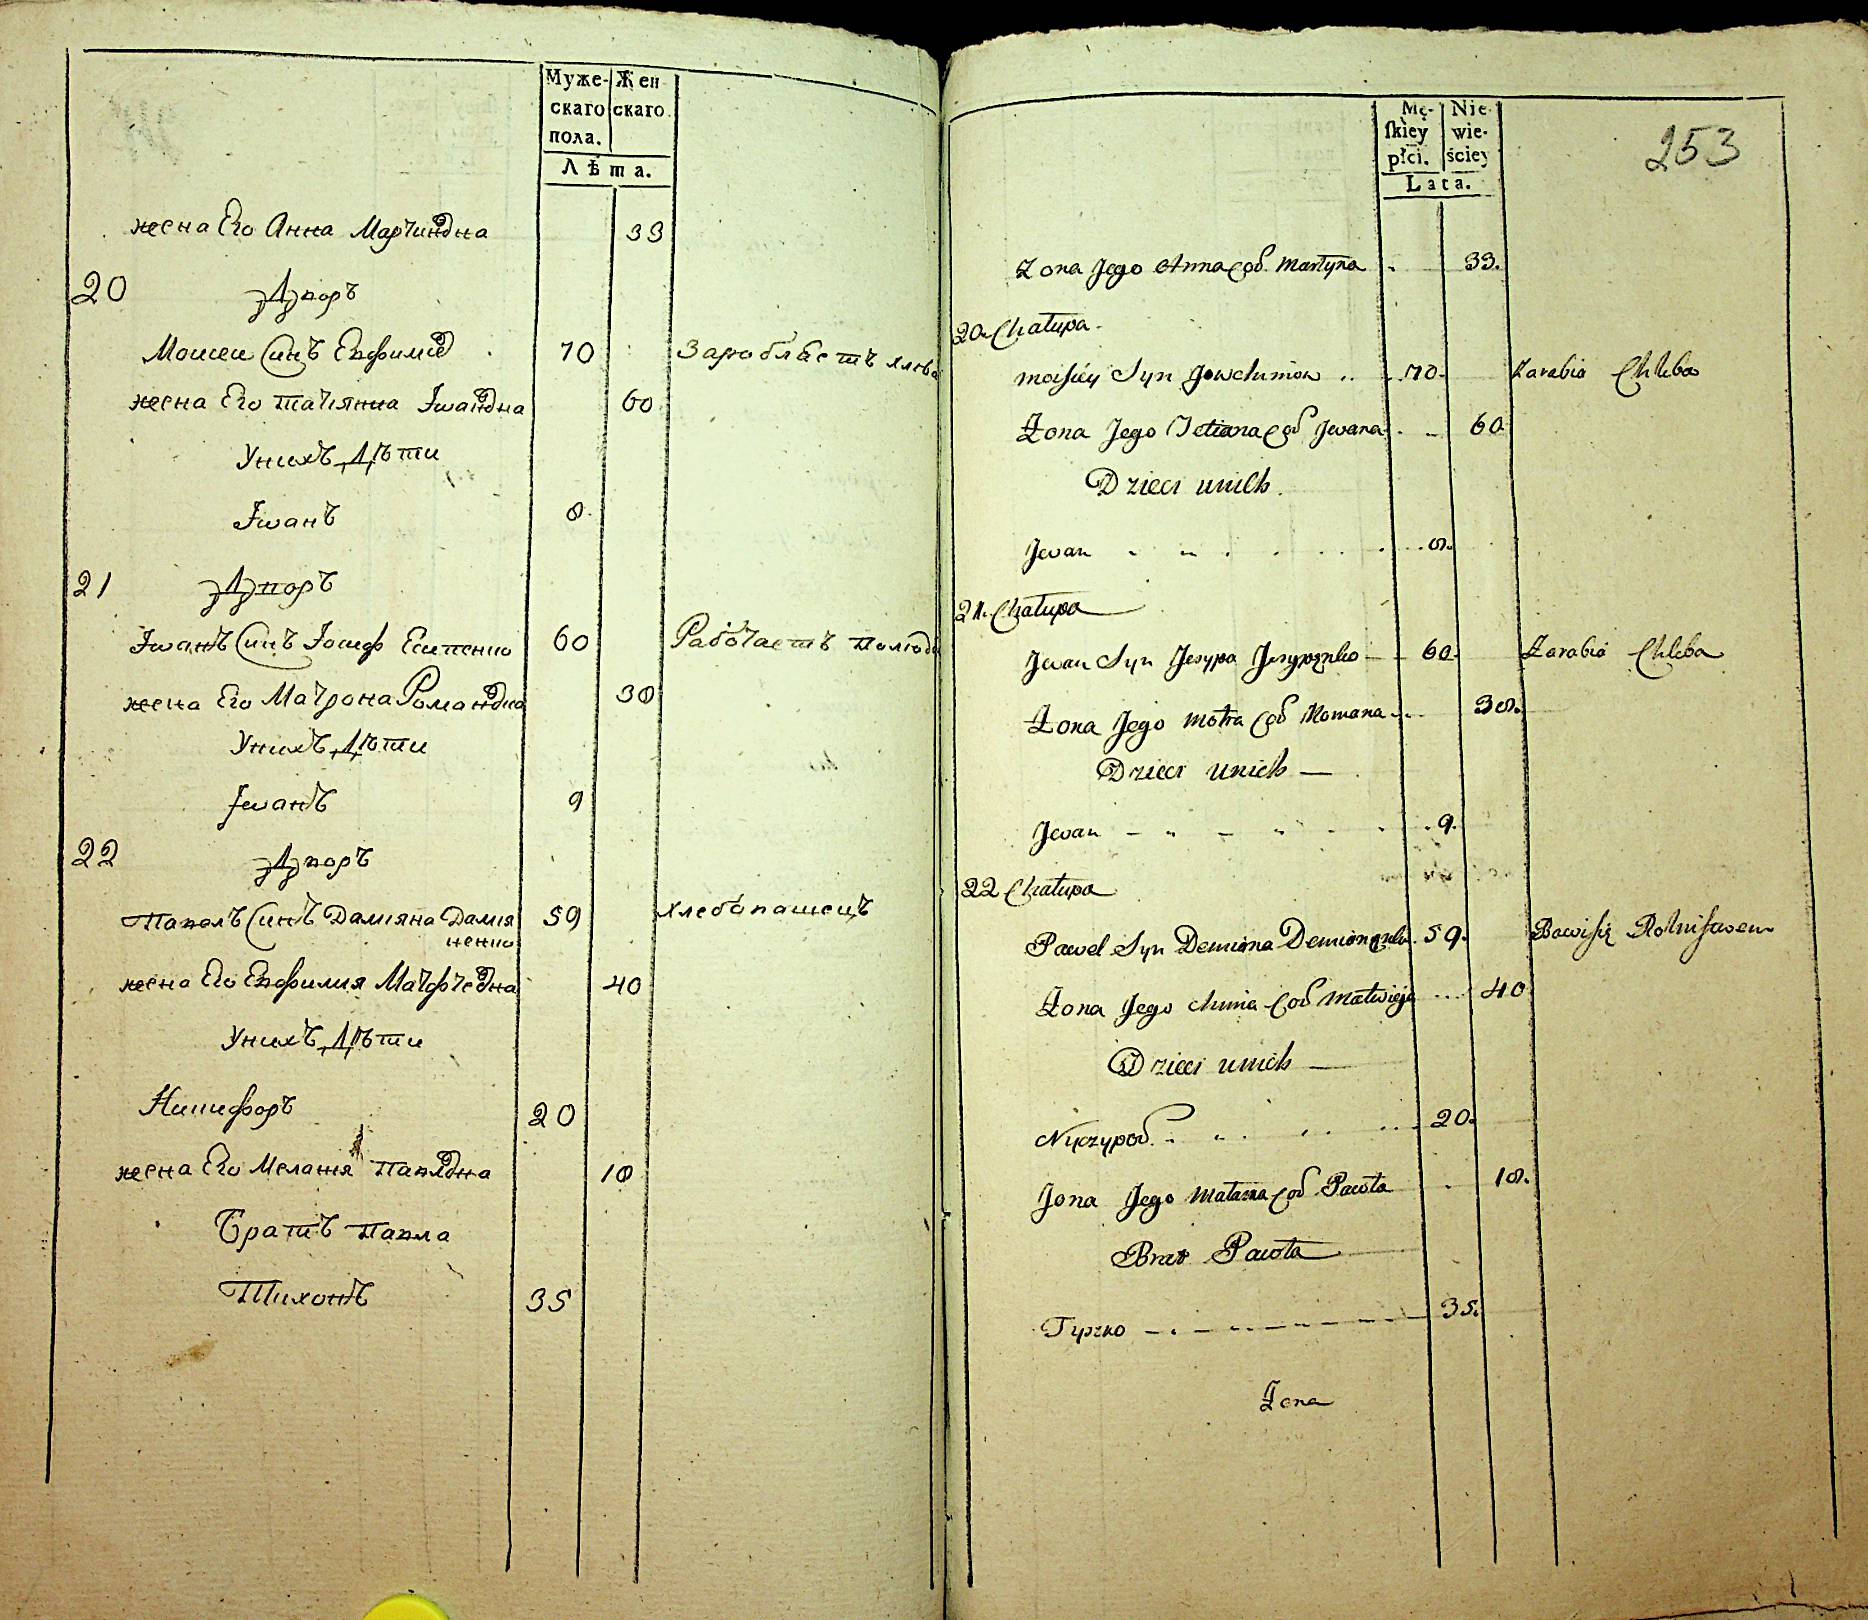 Муже- Жен
скаго скаго
пола.
Лѣта.
жена Его Анна Мартиновна 33
20 Дворъ
Моисеи Синъ Евфимов 70 Зароблаетъ хлеба
жена Его Татиянна Ивановна 60
У нихъ Дѣти
Иванъ 8
21 Дворъ
Иванъ Синъ Іосиф Есипенко 60 Работаетъ
жена Его Матрона Романовна 38
У нихъ Дѣти
Иванъ 9
22 Дворъ
Павелъ Синъ Дамияна Дамия
ненко 59 хлебопашецъ
жена Его Евфимия Матфѣевна 40
У нихъ Дѣти
Никифоръ 20
жена Его Мелания Павловна 18
Братъ Павла
Тихонъ 35
253
Mę- Nie
skiey wie-
płci. ściey
Lata.
Żona Jego Anna Cod Martyna 33.
20 Chałupa
Moisiey Syn Jowchimow 70. Zarabia Chleba
Żona Jego Tetiana Cod Jwana 60
Dzieci unich
Jwan 8.
21. Chałupa
Jwan Syn Jesypa Jesypęnko 60. Zarabia Chleba
Żona Jego Motra Cod Romana 38.
Dzieci unich
Jwan 9.
22 Chałupa
Paweł Syn Demiana Demianęnko 59. Bawi się Rolnistwem
Żona Jego chimia Cod Matwieja 40
Dzieci unich
Nyczypod 20.
Żona Jego Małania Cod Pawła 18.
Brat Pawła
Tyszko 35.
Żona